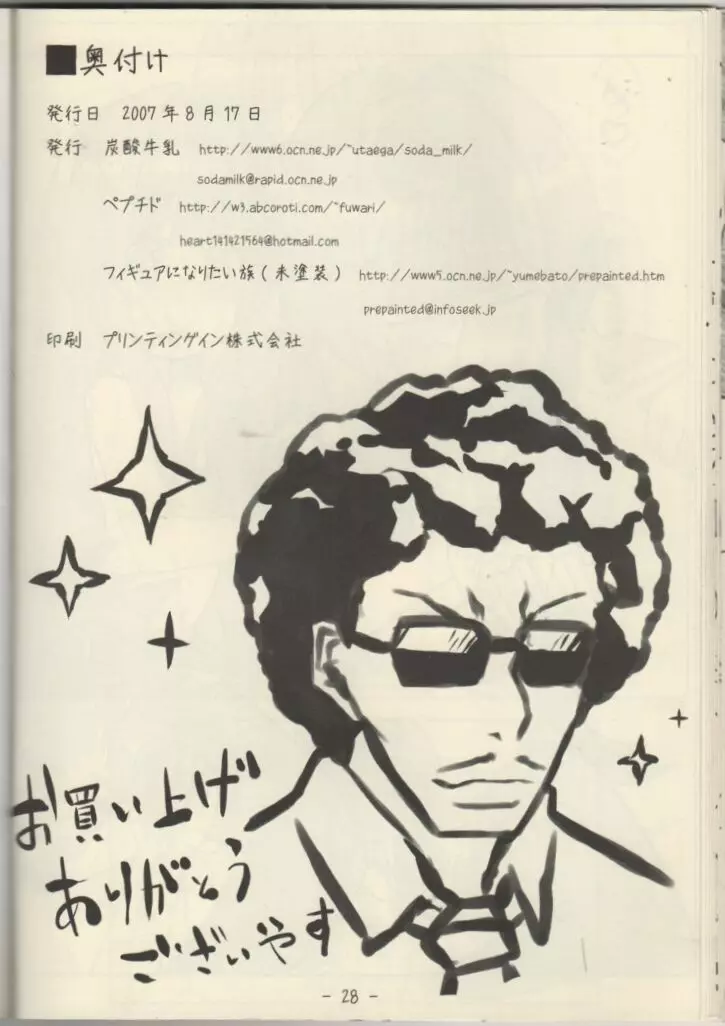 ■奥付け
発行日 2007年8月17日
発行 炭酸牛乳 http://www6.ocn.ne.jp/~utaega/soda_milk/
sodamilk@rapid.ocn.ne.jp
ペプチド http://w3.abcoroti.com/~fuwari/
heart141421564@hotmail.com
フィギュアになりたい族(未塗装) http://www5.ocn.ne.jp/~yumebato/prepainted.htm
prepainted@infoseek.jp
印刷 プリンティングイン株式会社
お買い上げ
ありがとう
ございやす
- 28 -